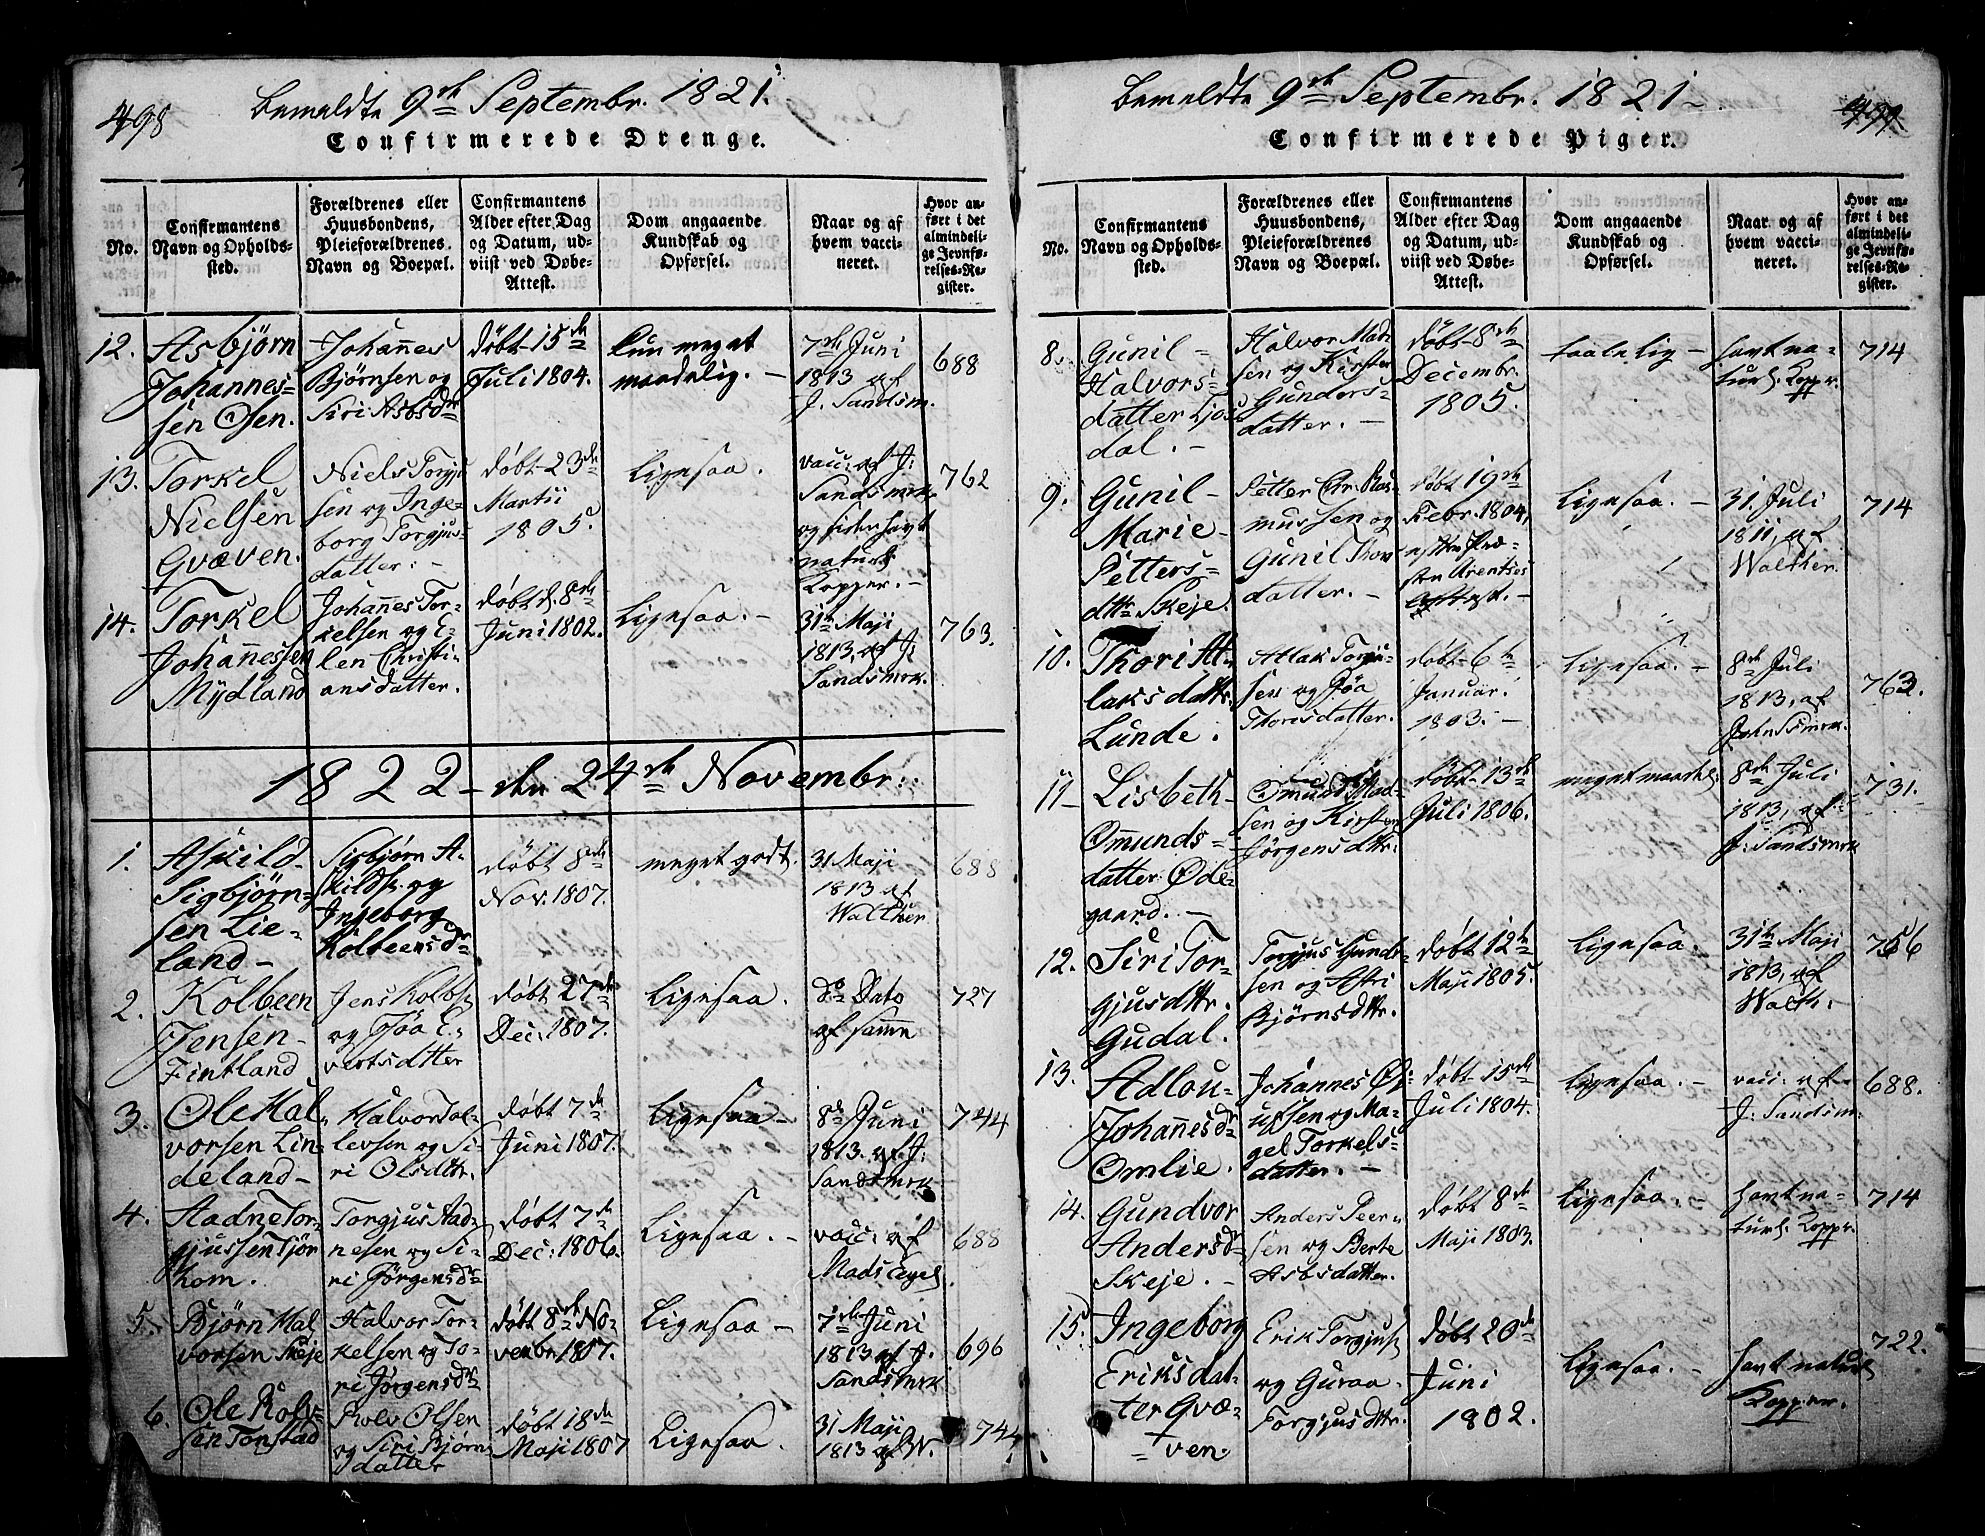 498
bemeldte 9de Septembr. 1821.
Confirmerede Drenge.
No.
Confirmantens
Navn og Opholds-
sted.
Forældrenes eller
Huusbondens,
Pleieforældrenes
Navn og Boepæl.
Confirmantens
Alder efter Dag
og Datum, ud-
viist ved Døbe-
Attest.
Dom angaaende
Kundskab og
Opførsel.
Naar og af
hvem vacci-
neret.
Hvor an-
ført i det
almindeli-
ge Jevnfø-
relses-Re-
gister.
12.
Asbjørn
Johannes-
sen Osen.
Johannes
Bjørnsen og
Siri Asbsdr
døbt 15de
Juli 1804.
kun meget
maadelig. -
7de Juni
1813 af
J. Sandsm.
688
13.
Torkel
Nielsen
Gvæven.
Niels Torgju
sen og Inge-
borg Torgjus-
datter. -
døbt 23de
Martii
1805.
Ligesaa.
vacc: af J:
Sandsmrk
og siden havt
naturl.
Kopper. -
762
14.
Torkel
Johannessen
Mydland
Johannes Tor-
kelsen og E-
len Christi-
ansdatter.
døbt d. 8de
Juni 1802.
Ligesaa. -
31te Maji
1813, af J:
Sandsmrk.
763.
1822 - den 24de Novembr:.
1.
Askild
Sigbjørn-
sen Lie-
land -
Sigbjørn A-
skilds. og
Ingeborg
Kolbeensdr
døbt 8de
Nov. 1807.
meget godt.
31 Maji
1813 af
Walther
688
2.
Kolbeen
Jensen -
Fintland
Jens Kolbs.
og Gjøa E-
vertsdatter
døbt 27de
Dec: 1807.
Ligesaa.
do Dato
af samme
727
3.
Ole Hal-
vorsen Lin-
deland -
Halvor Tol-
levsen og Si-
ri Olsdttr.
døbt 7de
Juni 1807.
Ligesaa -
8de Juni
1813 af J:
Sandsmrk
744
4.
Aadne Tor-
gjussen Tjør
hom.
Torgjus Aad-
nesen og Si-
ri Jørgensdr
døbt 7de
Dec: 1806.
Ligesaa. -
vacc: af
Mads Egel.
688
5.
Bjørn Hal
vorsen Skeje
Halvor Tor-
kelsen og To-
ri Jørgensdr
døbt 8de No-
vembr 1807.
Ligesaa -
7de Juni
1813 af J.
Sandsmrk
696
6.
Ole Rolv-
sen Tonstad
Rolv Olsen
og Siri Bjørns
datter
døbt 18de
Maji 1807
Ligesaa.
31 Maji
1813 af W.
744
499
bemeldte 9de Septembr. 1821 -
Confirmerede Piger.
No.
Confirmantens
Navn og Opholds-
sted.
Forældrenes eller
Huusbondens,
Pleieforældrenes
Navn og Boepæl.
Confirmantens
Alder efter Dag
og Datum, ud-
viist ved Døbe-
Attest.
Dom angaaende
Kundskab og
Opførsel.
Naar og af
hvem vacci-
neret.
Hvor an-
ført i det
almindeli-
ge Jevnfø-
relses-Re-
gister.
8.
Gunil -
Halvors-
datter Ljos-
dal. -
Halvor Mad-
sen og Kirsten
Gunders-
datter. -
døbt 8de
Decembr.
1805.
taalelig -
havt na-
turl. Kopp.
714
9.
Gunil -
Marie -
Petters-
dttr Skeje.
Petter Chr. Ras-
mussen og
Gunil Thor
datter. -
døbt 19de
Febr. 1804,
efter Præ-
sten Arentzes
Attest. -
Ligesaa. -
31. Juli
1811, af
Walther.
714
10.
Thori At-
laksdattr.
Lunde.
Atlak Torgju-
sen og Gjøa
Thoresdatter.
døbt 6te
Januar.
1803. -
Ligesaa. -
8de Juli
1813, af
John Sdmrk.
763.
11 -
Lisbeth -
Omunds-
datter Øde-
gaard. -
Omund Mad-
sen og Kirsten
Jørgensdttr.
døbt 13de
Juli 1806.
8de Juli
1813, af
J. Sandsmrk
731.
12.
Siri Tor-
gjusdttr.
Gudal.
Torgjus Gundr-
sen og Astri
Bjørnsdttr.
døbt 12te
Maji 1805.
Ligesaa.
31te Maji
1813, af
Walth. -
756
13.
Adlou -
Johannesdr
Omlie.
Johannes Øs-
ufsen og Ma-
gel Torkels-
datter. -
døbt 15de
Juli 1804.
Ligesaa. -
vacc. af
J: Sandsm.
688.
14.
Gundvor
Andersdr
Skeje. -
Anders Peer-
sen og Berte
Asbsdatter.
døbt 8de
Maji 1803.
Ligesaa. -
havt na-
turl. Kopper.
714
15.
Ingeborg
Eriksdat-
ter Gvæ-
ven.
Erik Torgjus.
og Guraa
Torgjusdttr.
døbt 20de
Juni
1802.
Ligesaa. -
havt naturl
Kopper.
722.